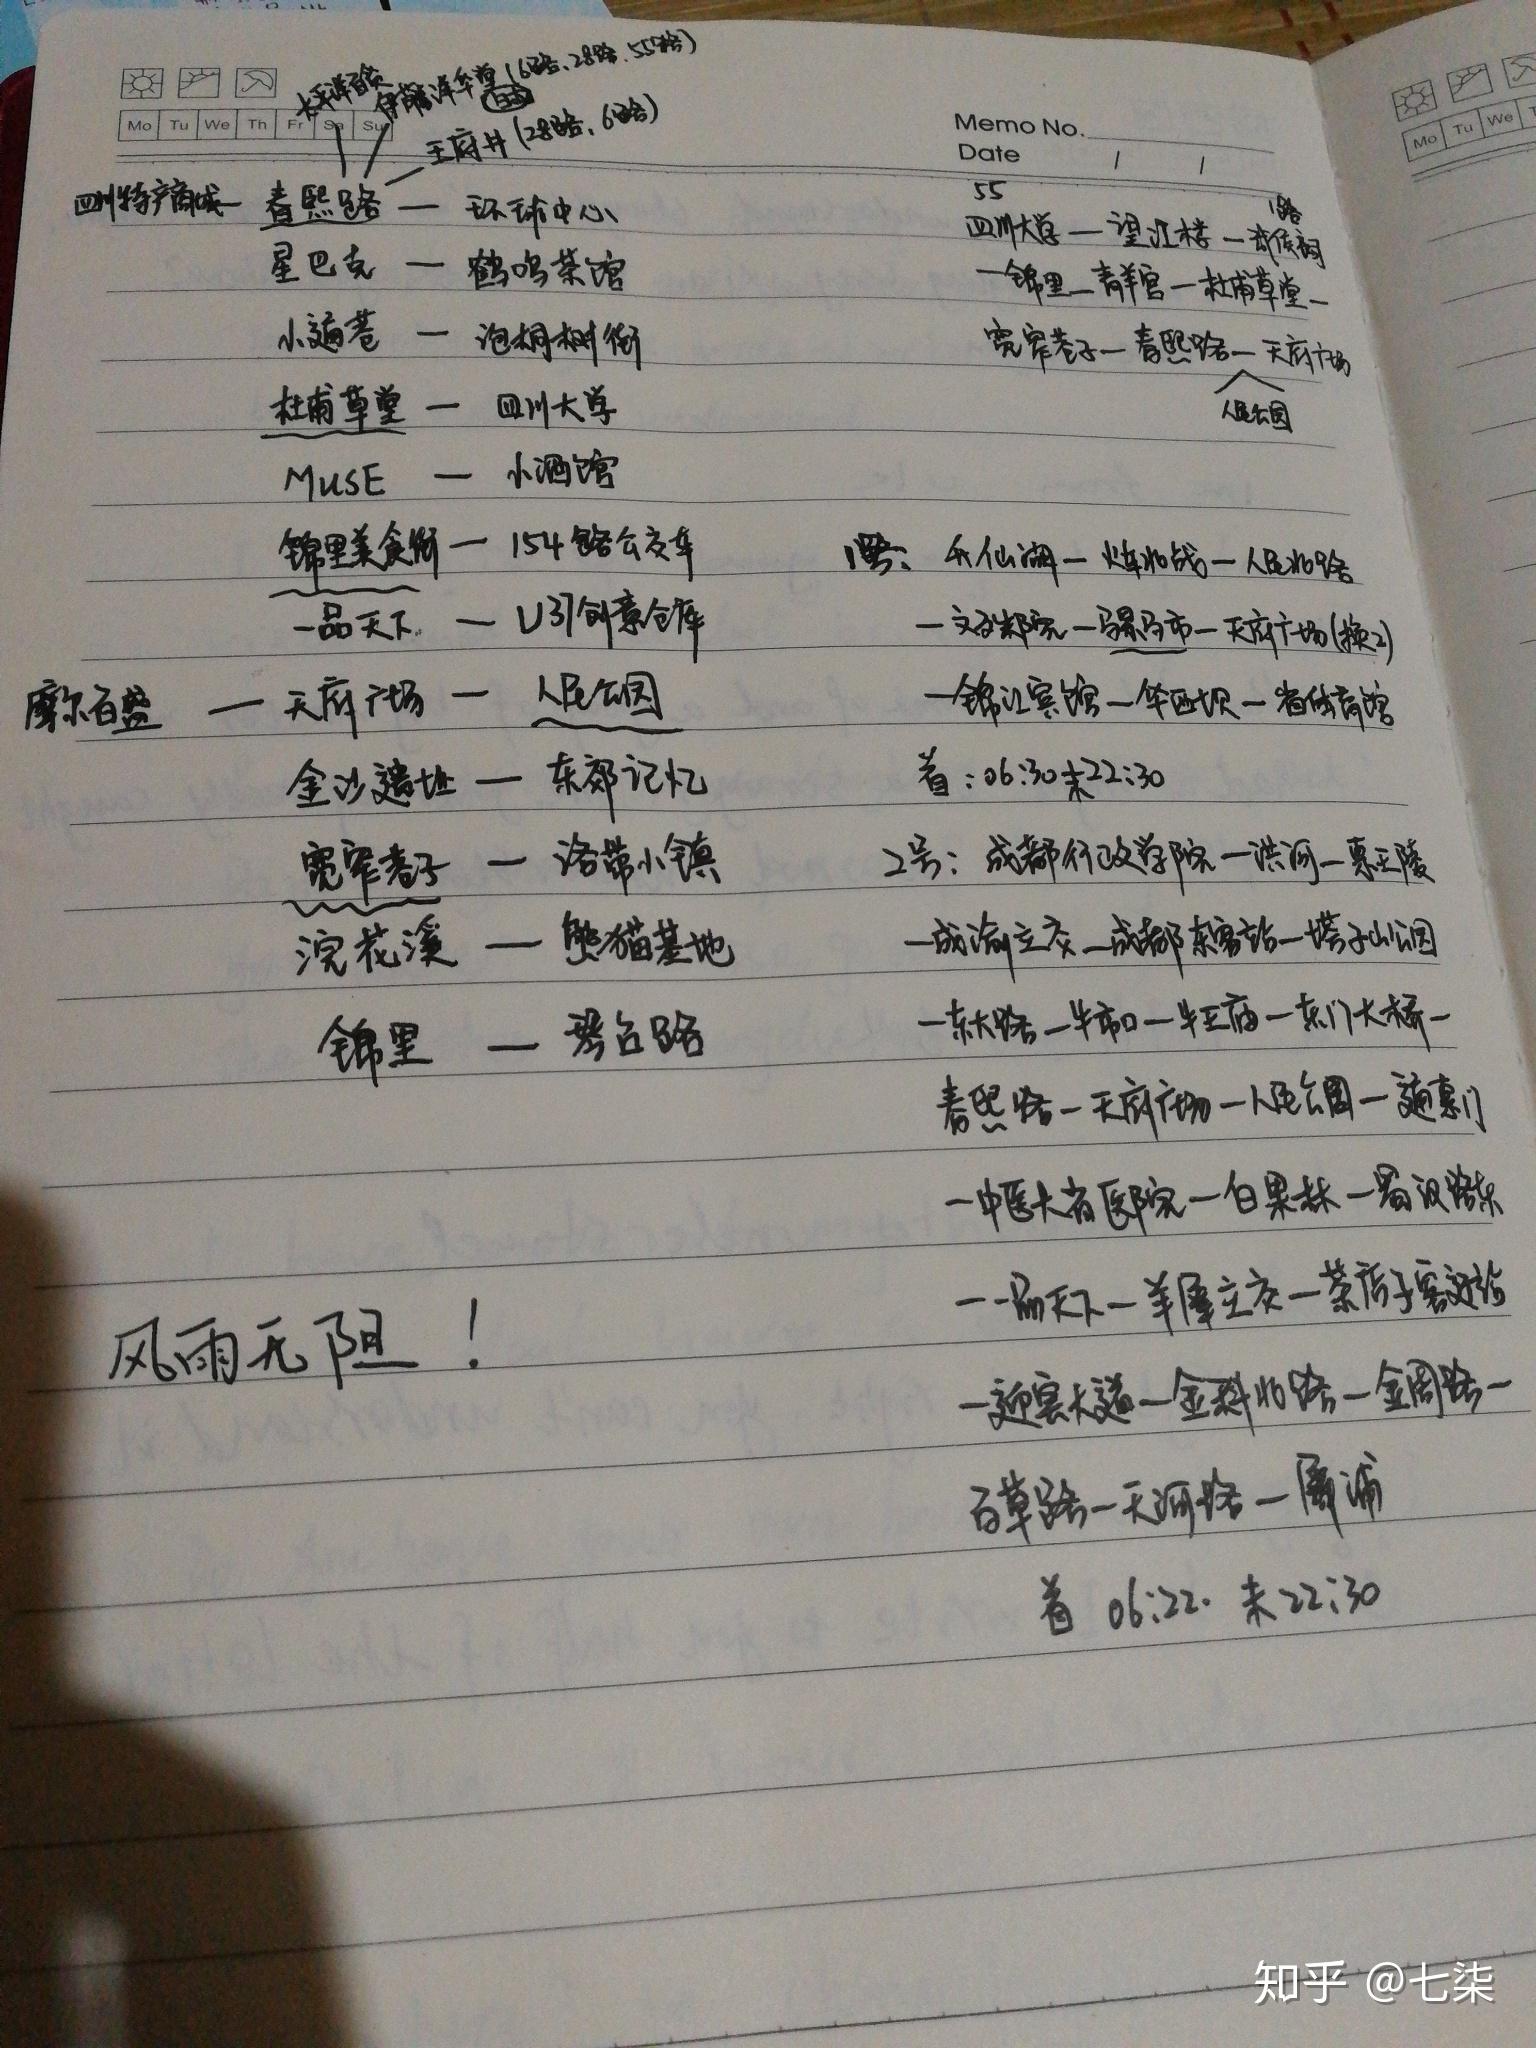 太平洋百货
伊藤洋华堂(6路、28路、55路)
Mo Tu We Th Fr Sa Su
王府井(28路、6路)
四川特产商城—春熙路 — 环球中心
星巴克 — 鹤鸣茶馆
小通巷 — 泡桐树街
杜甫草堂 — 四川大学
MUSE — 小酒馆
锦里美食街 — 154路公交车
一品天下 — U37创意仓库
摩尔百盛 — 天府广场 — 人民公园
金沙遗址 — 东郊记忆
宽窄巷子 — 洛带小镇
浣花溪 — 熊猫基地
锦里 — 琴台路
风雨无阻!
Memo No.
Date / /
55
1路
四川大学—望江楼—武侯祠
—锦里—青羊宫—杜甫草堂—
宽窄巷子—春熙路—天府广场
人民公园
1号: 升仙湖—火车北站—人民北路
—文殊院—骡马市—天府广场(换2)
—锦江宾馆—华西坝—省体育馆
首:06:30 末22:30
2号: 成都行政学院—洪河—惠王陵
—成渝立交—成都东客站—塔子山公园
—东大路—牛市口—牛王庙—东门大桥—
春熙路—天府广场—人民公园—通惠门
—中医大省医院—白果林—蜀汉路东
—一品天下—羊犀立交—茶店子客运站
—迎宾大道—金科北路—金周路—
百草路—天河路—犀浦
首 06:22. 末22:30
Mo Tu We T
知乎 @七柒